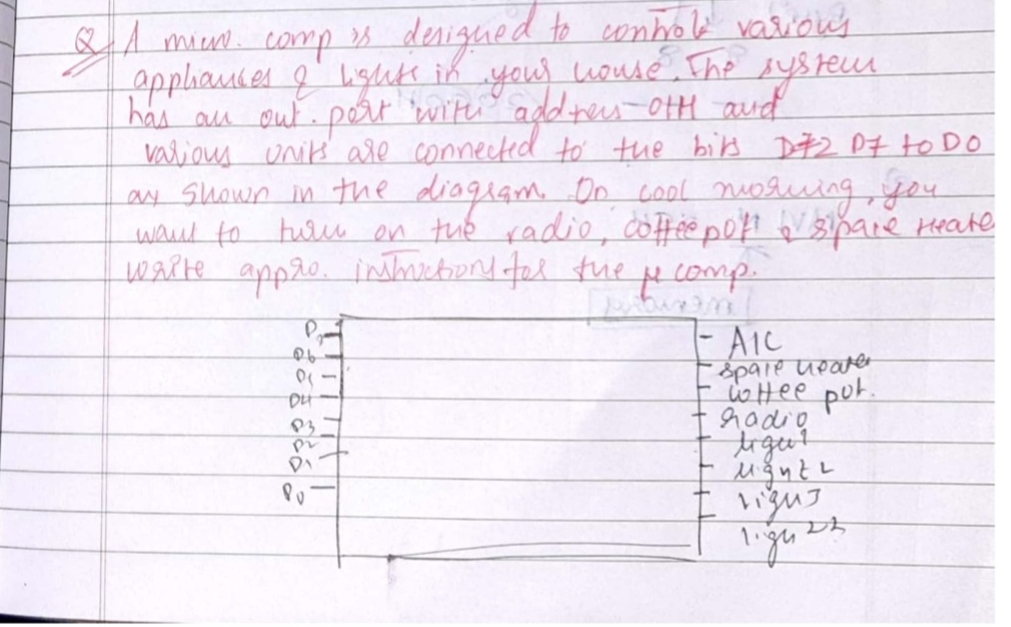 Q A micro. comp is designed to control various
appliances & lights in your house. The system
has an out. port with address 01H and
various units are connected to the bits D7 to D0
as shown in the diagram. On cool morning, you
want to turn on the radio, coffeepot & space Heate
write appro. instructions for the μ comp.
D7 A/C
D6 space heater
D5 coffee pot.
D4 radio
D3 light1
D2 light 2
D1 ligh3
D0